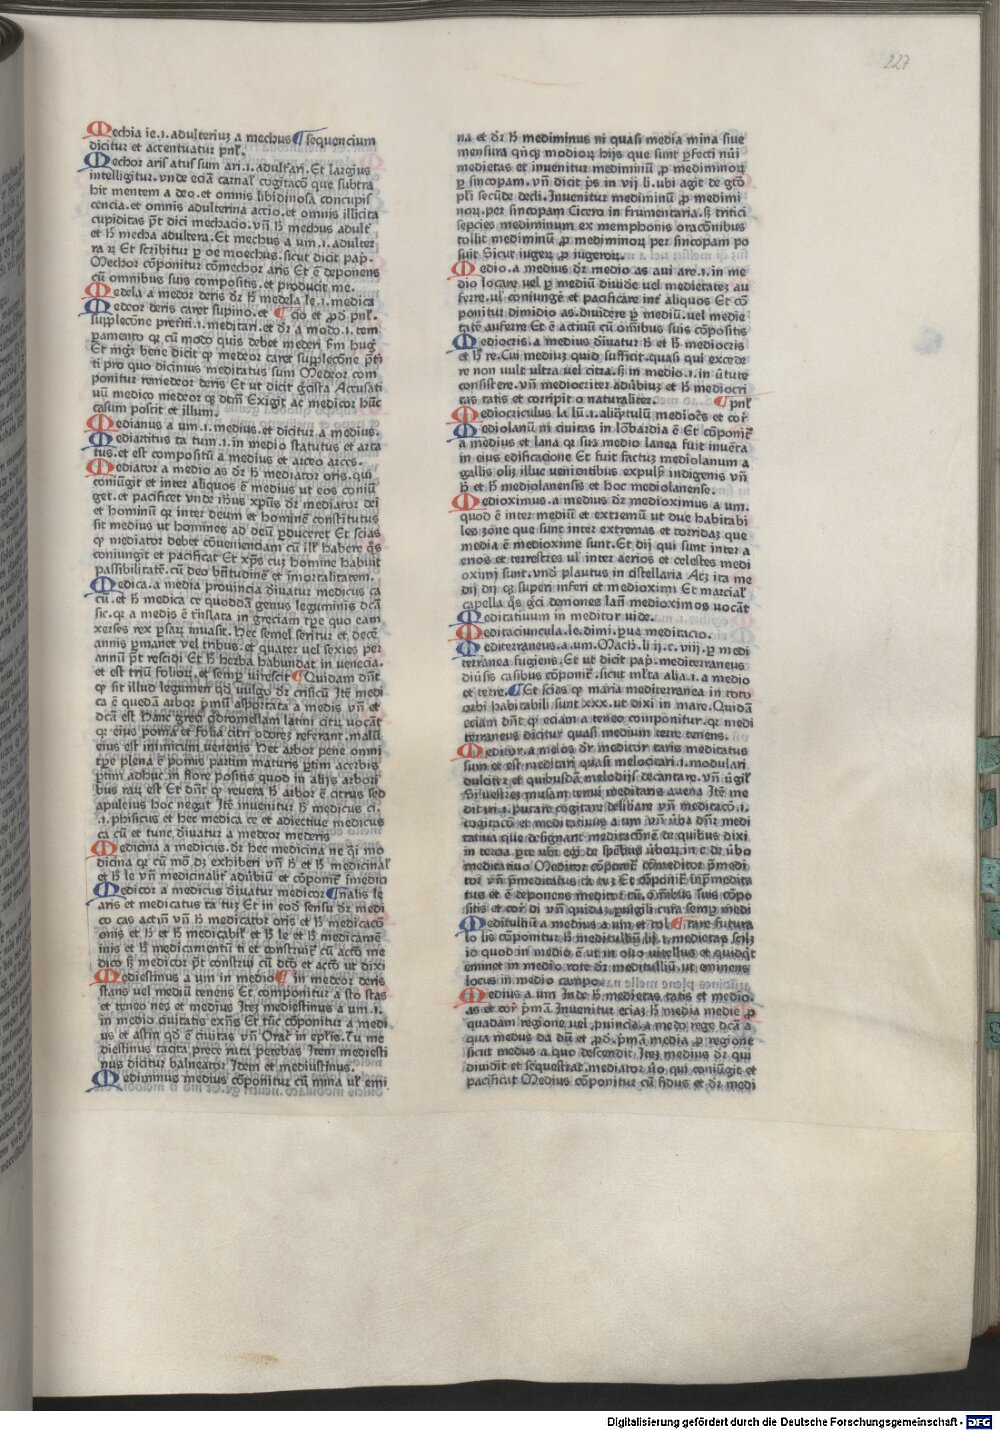 227
Mechia ie .i. adulteriuʒ a mechus ¶ sequencium
dicitur et accentuatur pnl̃.
Mechor aris atus sum ari .i. adult̃ari. Et largius
intelligitur. vnde eciã carnal̃ cogitacõ que subtra
hit mentem a deo. et omnis libidinosa concupis
cencia. et omnis adulterina actio. et omnis illicita
cupiditas p̃t dici mechacio. vñ h̃ mechus adult̃
et h̃ mecha adultera. Et mechus a um .i. adulter
ra ꝝ Et scribitur ꝑ oe moechus. sicut dicit pap̃.
Mechor cõponitur cõmechor aris Et ẽ deponens
cũ omnibus suis compositis. et producit me.
Medela a medor deris dr̃ h̃ medela le .i. medica
Medeor deris caret supino. et ¶ cio et ꝓd̃ pnl̃.
supplecõne pret̃iti .i. meditari. et dr̃ a modo .i. tem
pamento qꝛ cũ modo quis debet mederi s̃m hug̃
Et mgr̃ bene dicit ꝙ medeor caret supplecõne p̃ti
ti pro quo dicimus meditatus sum Medeor com
ponitur remedeor deris Et ut dicit g̃cista Accusati
uũ medico medeor qꝫ dt̃m Exigit ac medicor hũc
casum poscit et illum.
Medianus a um .i. medius. et dicitur a medius.
Mediartitus ta tum .i. in medio statutus et arta
tus. et est compositũ a medius et arceo arces.
Mediator a medio as dr̃ h̃ mediator oris. qui
coniũgit et inter aliquos ẽ medius ut eos coniũ
get. et pacificet vnde ihus xp̃us dr̃ mediator dei
et hominũ qꝛ inter deum et hominẽ constitutus
sit medius ut homines ad deũ ꝑduceret Et scias
ꝙ mediator debet cõuenienciam cũ ill̃ habere q̃s
coniungit et pacificat Et xp̃s cuʒ homine habuit
passibilitatẽ. cũ deo bñtitudinẽ et ĩmortalitatem.
Medica. a media prouincia diuatur medicus ca
cũ. et h̃ medica ce quoddã genus leguminis dc̃ã
sic. qꝛ a medis ẽ trãslata in greciam tꝑe quo eam
xerses rex ꝑsaꝝ inuasit. Hec semel seritur et decẽ
annis ꝑmanet vel tribus. et quater vel sexies per
annũ p̃t rescidi Et h̃ herba habundat in venecia.
et est triũ folioꝝ. et semꝑ virescit ¶ Quidam dñt
ꝙ sit illud legumen qd̃ vulgo dr̃ criscũ Itẽ medi
ca ẽ quedã arbor p̃mũ asportata a medis vñ et
dc̃ã est Hanc greci cedromellam latini citꝝ uocãt
qꝛ eius poma et folia citri odoreʒ referant. malũ
eius est inimicum uenenis Hec arbor pene omni
tꝑe plena ẽ pomis partim maturis ꝑtim acerbis
ꝑtim adhuc in flore positis quod in alijs arbori
bus raꝝ est Et dñt ꝙ reuera h̃ arbor ẽ citrus sed
apuleius hoc negat Itẽ inuenitur h̃ medicus ci.
.i. phisicus et hec medica ce et adiectiue medicus
ca cũ et tunc diuatur a medeor mederis
Medicina a medicus. dr̃ hec medicina ne q̃i mo
dicina qꝛ cũ mõ. dʒ exhiberi vñ h̃ et h̃ medicinal̃
et h̃ le vñ medicinalit̃ aduibiũ et cõponit̃ ĩmedici
Medicor a medicus diuatur medicor ¶ nalis le
aris et medicatus ta tuʒ Et in eod̃ sensu dr̃ medi
co cas actiũ vñ h̃ medicator oris et h̃ medicacõ
onis et h̃ et h̃ medicabil̃ et h̃ le et h̃ medicamẽ
inis et h̃ medicamentũ ti et construit̃ cũ actõ me
dico s̃ʒ medicor p̃t construi cũ dtõ et actõ ut dixi
Mediestinus a um in medio ¶ in medeor deris
stans vel mediũ tenens Et componitur a sto stas
et teneo nes et medius Iteʒ mediestinus a um .i.
in medio ciuitatis exñs Et tũc cõponitur a medi
us et astin qd̃ ẽ ciuitas vñ Orac̃ in epl̃is. Tu me
diestinus tacita prece rura petebas Item mediesti
nus dicitur balneator. Idem et mediustinus.
Mediminus medius cõponitur cũ mina ul̃ emi
na et dr̃ h̃ mediminus ni quasi media mina siue
mensura qñqʒ modioꝝ hijs que sunt ꝑfecti nũi
medietas et inuenitur mediminũ ꝓ mediminoꝝ
ꝑ sincopam. vñ dicit p̃s in vij li. ubi agit de gtõ
pl̃i secũde decli. Inuenitur mediminũ ꝓ medimi
noꝝ. per sincopam Cicero in frumentaria. s̃ʒ tritici
sepcies mediminum ex memphonis oracõnibus
tollit mediminũ ꝓ mediminoꝝ per sincopam po
suit Sicut iugeꝝ ꝓ iugeroꝝ.
Medio. a medius dr̃ medio as aui are .i. in me
dio locare uel ꝑ mediũ diuide uel medietateʒ au
ferre. ul̃ coniungẽ et pacificare int̃ aliquos Et cõ
ponitur dimidio as. diuidere ꝑ mediũ. uel medie
tatẽ auferre Et ẽ actiuũ cũ om̃ibus suis cõpositis
Mediocris. a medius diuatur h̃ et h̃ mediocris
et h̃ re. Cui mediuʒ quid sufficit. quasi qui excede
re non uult ultra uel citra. s̃ʒ in medio .i. in ũtute
consistere. vñ mediocriter aduibiuʒ et h̃ mediocri
tas tatis et corripit o naturaliter. ¶ pnl̃
Mediocriculus la lũ .i. aliq̃ntulũ mediocr̃s et cor̃
Mediolanũ ni ciuitas in lõbardia ẽ Et cõponit̃
a medius et lana qꝛ sus medio lanea fuit inuẽta
in eius edificacione Et fuit factuʒ mediolanum a
gallis oliʒ illuc uenientibus expulsʒ indigenis vñ
h̃ et h̃ mediolanensis et hoc mediolanense.
Medioximus. a medius dr̃ medioximus a um.
quod ẽ inter mediũ et extremũ ut due habitabi
les zone que sunt inter extremas et torridaʒ que
media ẽ medioxime sunt. Et dij qui sunt inter a
erios et terrestres ul̃ inter aerios et celestes medi
oximi sunt. vnd̃ plautus in cistellaria Atʒ ita me
dij dij qʒ superi inferi et medioximi Et marcial̃
capella q̃s g̃ci demones lat̃i medioximos uocãt
Meditatiuum in meditor uide.
Meditaciuncula. le. dimi. ꝑua meditacio.
Mediterraneus. a um. Mach̃. li ij. c. viij. ꝑ medi
terranea fugiens. Et ut dicit pap̃. mediterraneus
diũsis casibus cõponit̃. sicut ml̃ta alia .i. a medio
et terre. ¶ Et scias ꝙ maria mediterranea in toto
orbi habitabili sunt xxx. ut dixi in mare. Quidã
eciam dñt ꝙ eciam a teneo componitur. qꝛ medi
terraneus dicitur quasi medium terre tenens.
Meditor. a melos dr̃ meditor taris meditatus
sum et est meditari quasi melocitari .i. modulari
dulciter et quibusdã melodijs decantare. vñ ũgil̃
Siluestreʒ musam tenui meditaris auena Itẽ me
ditari .i. putare cogitare deliberare vñ meditacõ .i.
cogitacõ et meditatiuus a um vñ ũba dñr̃ medi
tatiua que designant meditacõnẽ de quibus dixi
in tercia ꝑte ubi egi de sp̃ebus ũboꝝ. in c de ũbo
meditatiuo Meditor cõponit̃ cõmeditor p̃medi
tor vñ p̃meditatus ta tuʒ Et cõponit̃ ĩnp̃medita
tus et ẽ deponens meditor cũ. om̃ibus suis cõpo
sitis et cor̃ di vñ quidaʒ ꝑuigili cura semꝑ medi
Meditulliũ a medius a um et tol ¶ tare futura
lo lis cõponitur h̃ meditulliũ lij .i. medietas sciʒ
io quod in medio ẽ ut in ouo uitellus et quidqt̃
eminet in medio rote dr̃ meditulliũ. ut eminens
locus in medio campo.
Medius a um Inde h̃ medietas tatis et medio.
as et cor̃ p̃mã Inuenitur eciaʒ h̃ media medie ꝓ
quadam regione uel ꝓuincia. a medo rege dc̃ã a
qua medus da dũ et ꝓd̃. p̃mã media ꝓ regione
sicut medus a quo descendit. Iteʒ medius dr̃ qui
diuidit et sequestrat. mediator ũo qui coniũgit et
pacificat Medius cõponitur cũ fidus et dr̃ medi
Digitalisierung gefördert durch die Deutsche Forschungsgemeinschaft - DFG